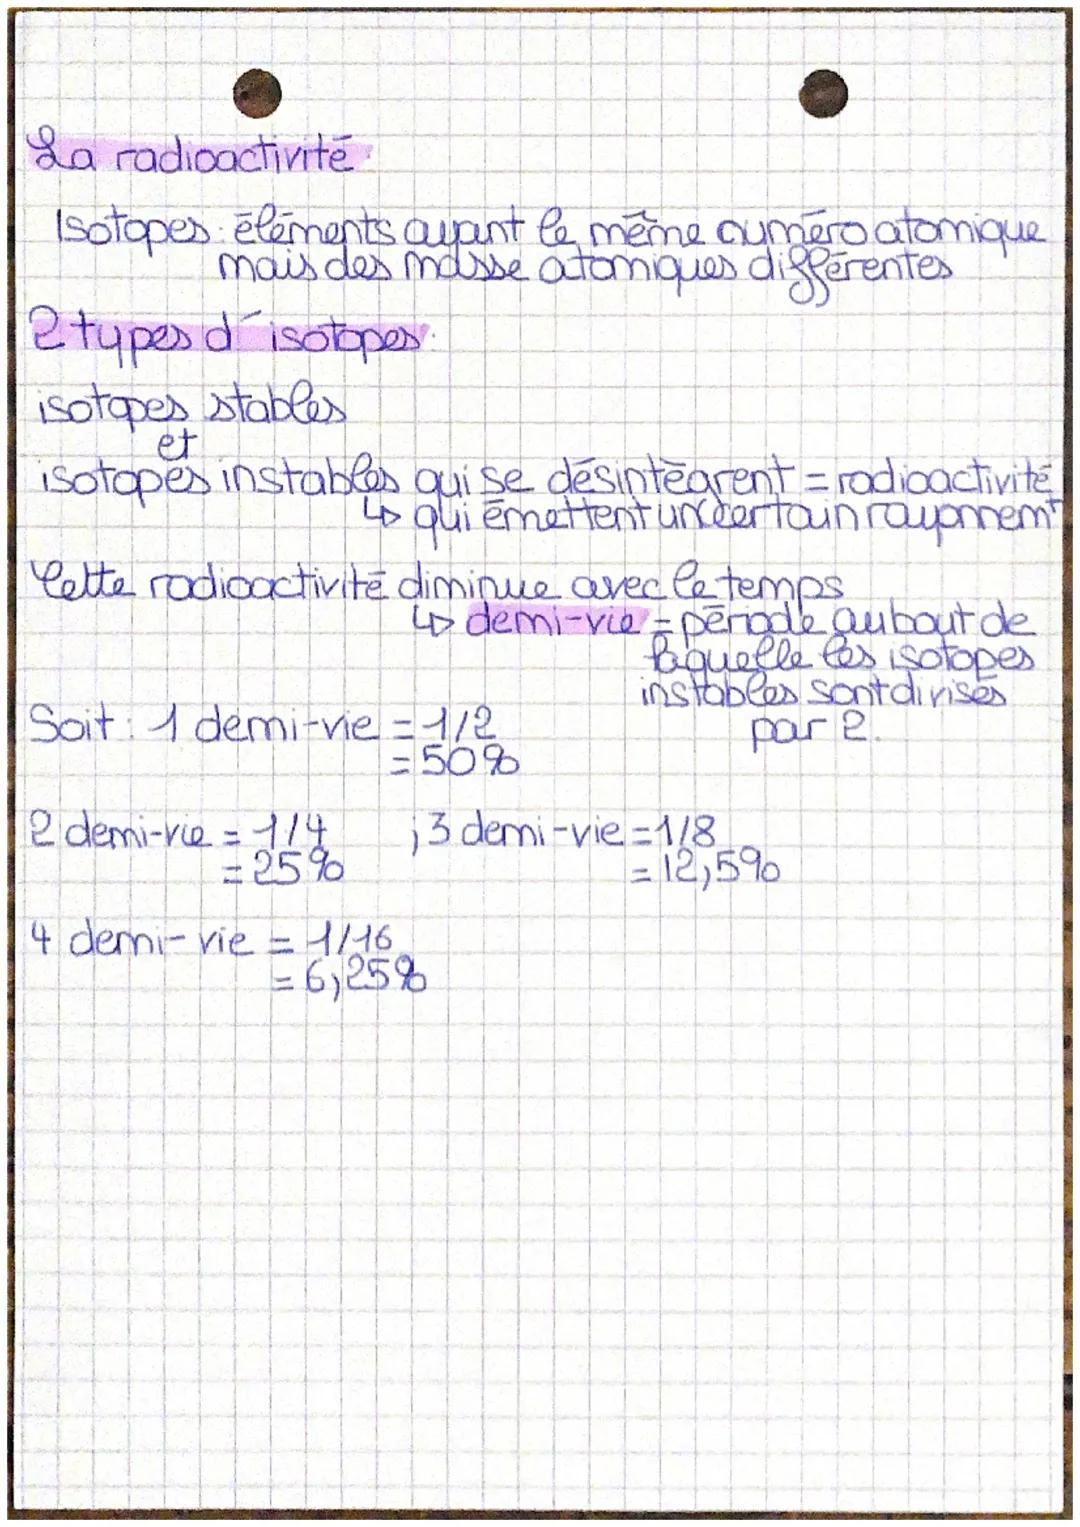 La radioactivité
Isotopes : éléments ayant le même numéro atomique
mais des masse atomiques différentes
2 types d'isotopes :
isotopes stables
et
isotopes instables qui se désintègrent = radioactivité
↳ qui émettent un certain rayonnemt
Cette radioactivité diminue avec le temps
↳ demi-vie = période au bout de
laquelle les isotopes
instables sont divisés
par 2.
Soit : 1 demi-vie = 1/2
= 50%
2 demi-vie = 1/4 ; 3 demi-vie = 1/8
= 25% = 12,5%
4 demi-vie = 1/16
= 6,25%